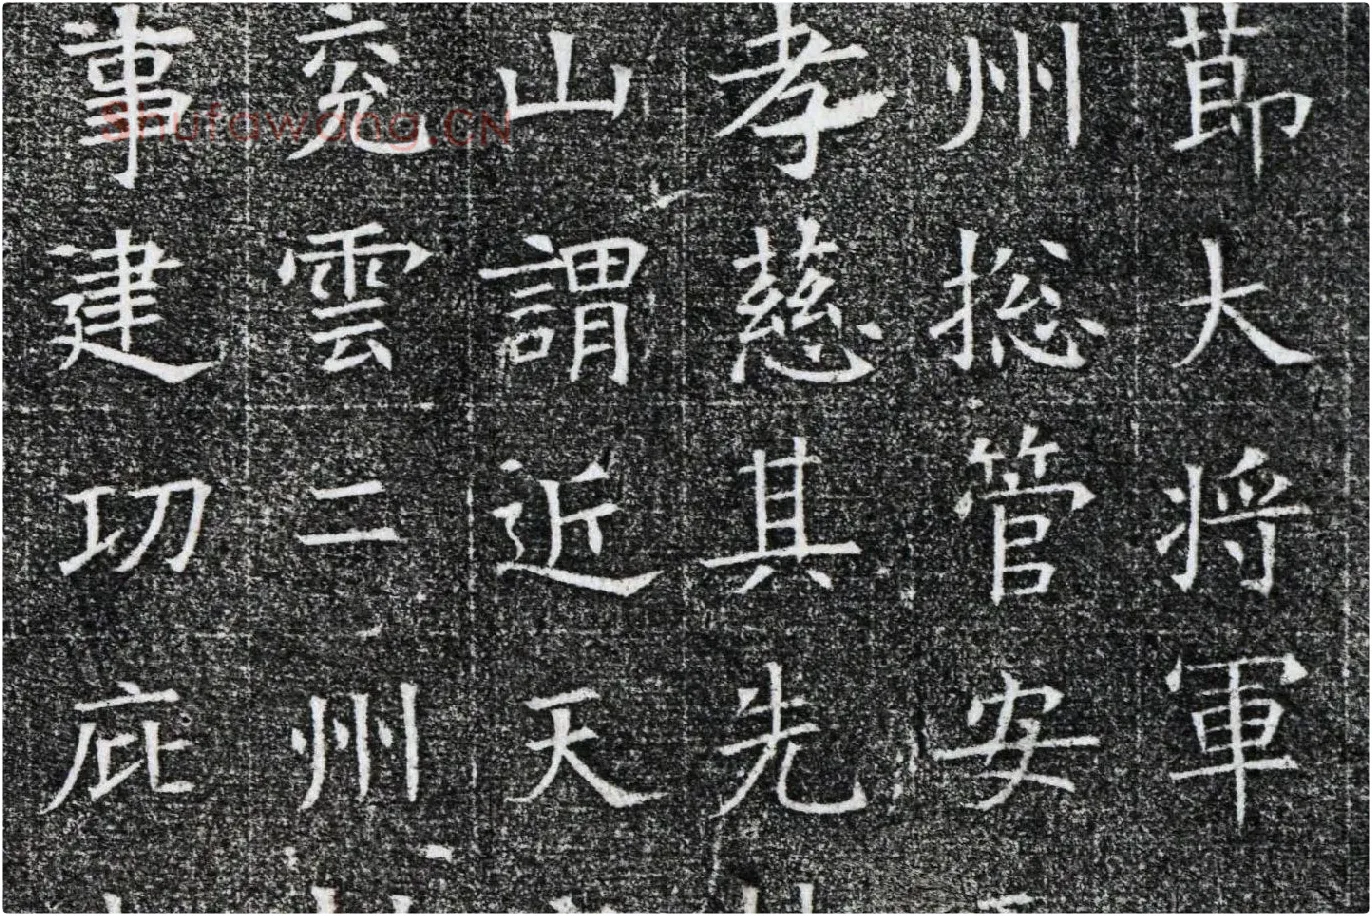 莭大将軍
州捴管安
孝慈其先
山謂近天
兖雲二州
事建㓛庇
Shufawang.CN